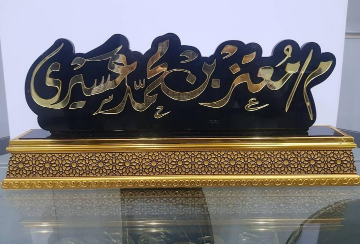 م/معتز بن محمد عسيري